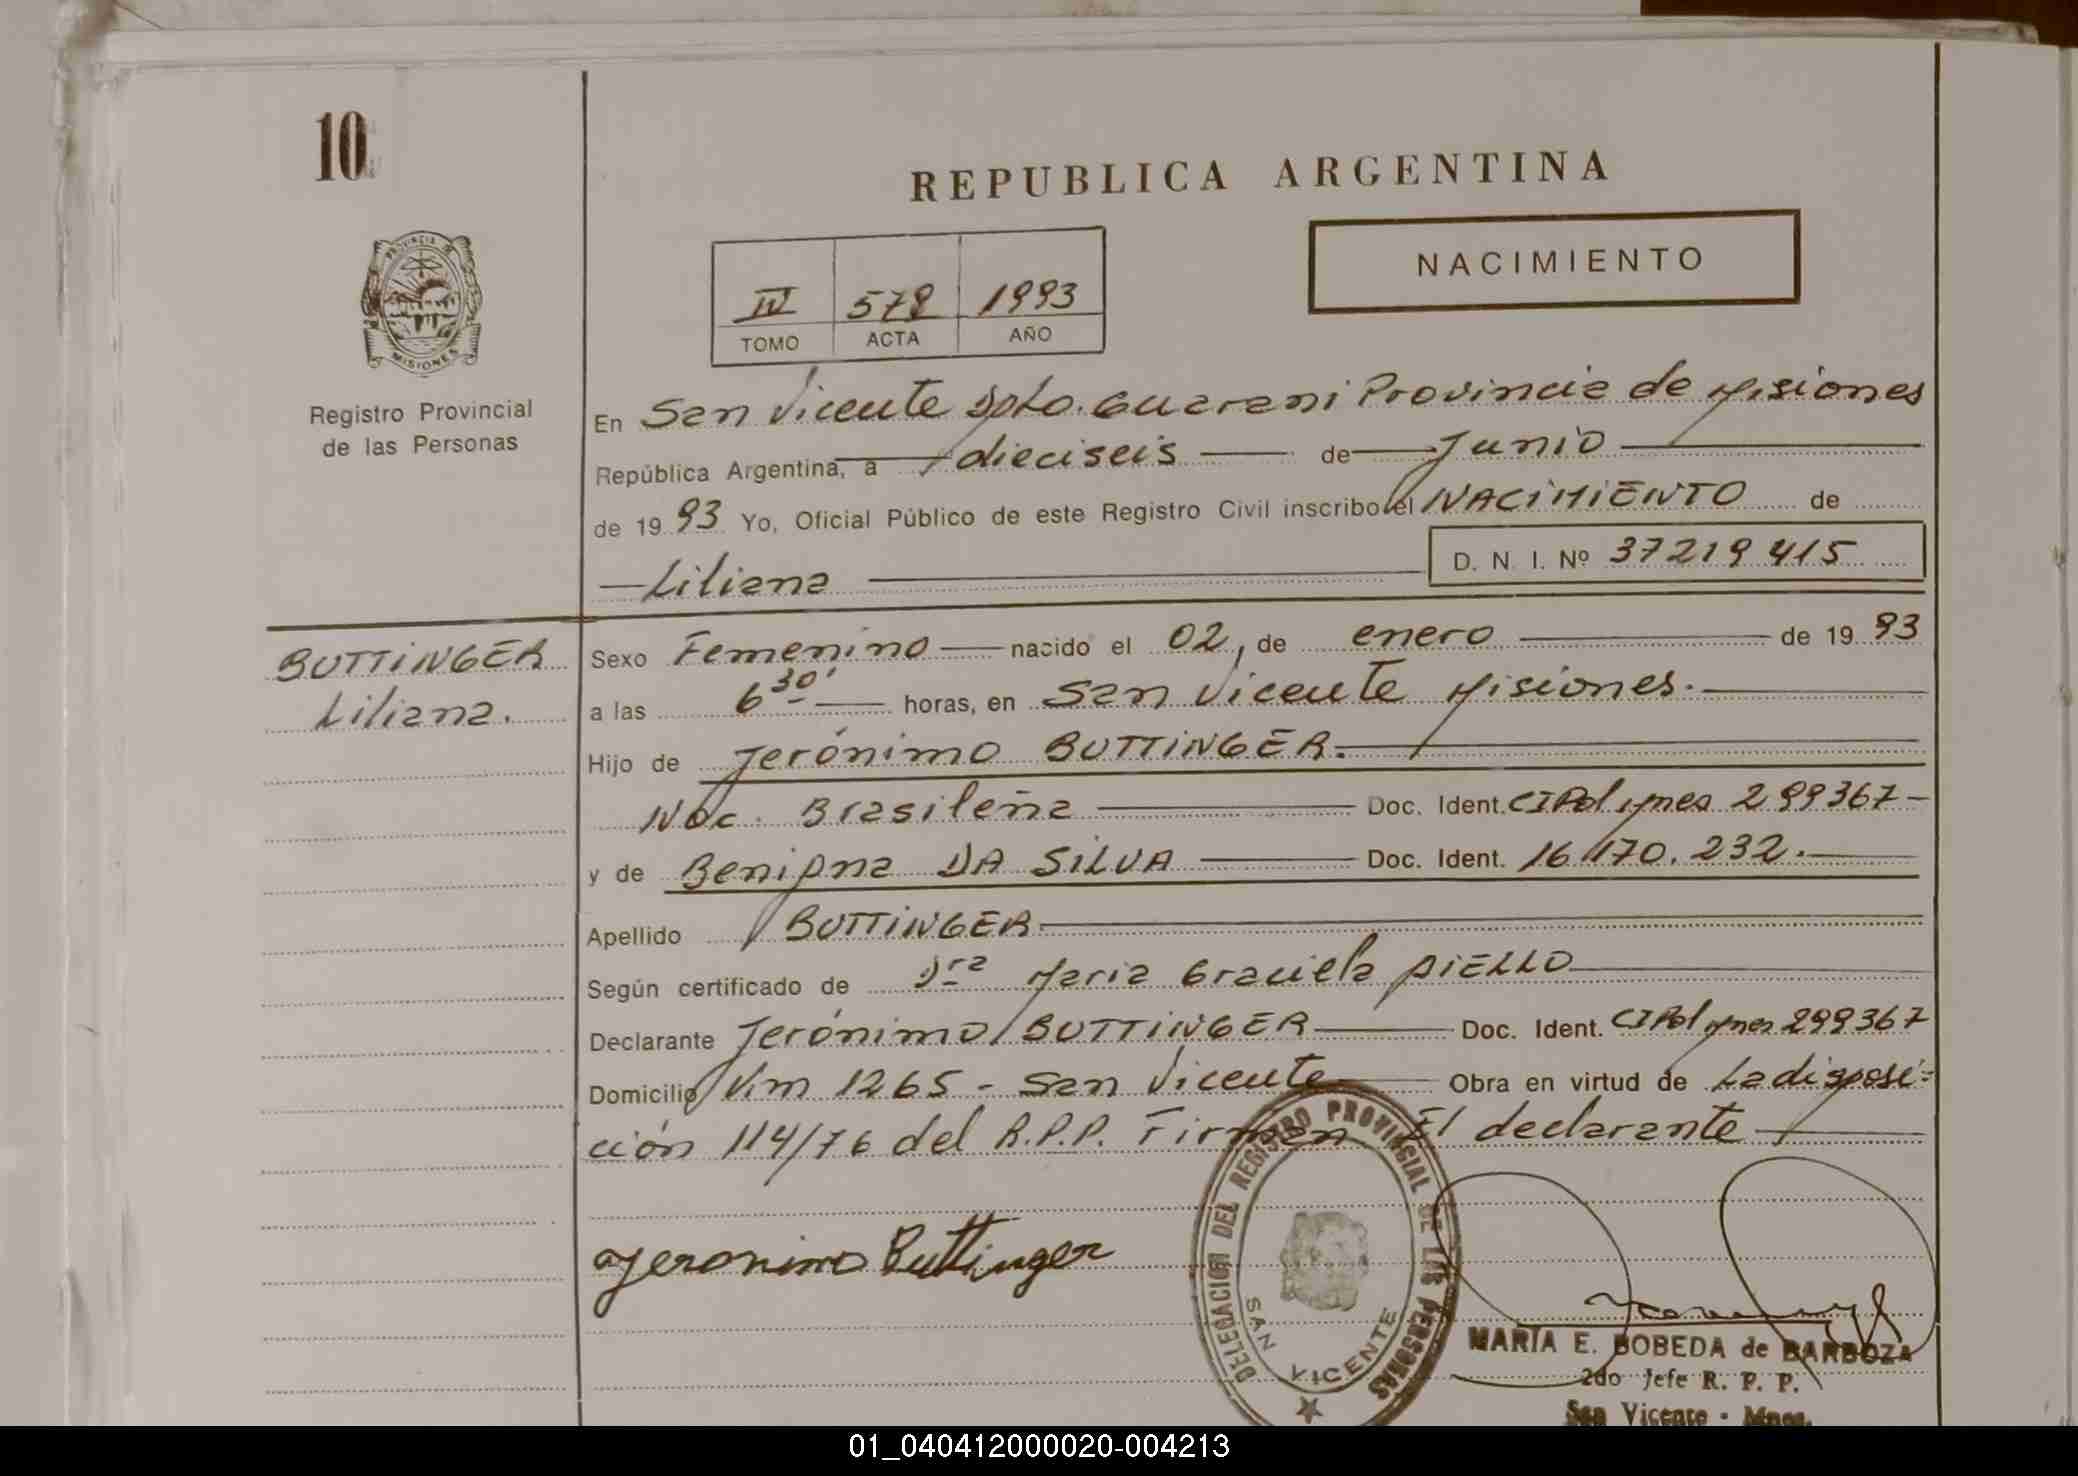 10
REPUBLICA ARGENTINA
NACIMIENTO
IV 578 1993
TOMO ACTA AÑO
PROVINCIA DE
MISIONES
Registro Provincial
de las Personas
En San Vicente Dpto. Guarani Provincia de Misiones
República Argentina, a dieciseis de Junio
de 1993 Yo, Oficial Público de este Registro Civil inscribo el NACIMIENTO de
Liliana D. N. I. Nº 37219415
BUTTINGER
Liliana.
Sexo Femenino nacido el 02, de enero de 1993
a las 6 30' horas, en San Vicente Misiones.
Hijo de Jerónimo BUTTINGER.
Nac. Brasileña Doc. Ident. CIPol Mnes 299367
y de Benigna DA SILVA Doc. Ident. 16.170.232.
Apellido BUTTINGER
Según certificado de Dra Maria Graciela AIELLO
Declarante Jerónimo BUTTINGER Doc. Ident. CIPol Mnes 299367
Domicilio Km 1265 - San Vicente Obra en virtud de La disposi-
ción 114/76 del R.P.P. Firman El declarante
Jeronimo Buttinger
DELEGACION DEL REGISTRO PROVINCIAL DE LAS PERSONAS
SAN VICENTE
MARIA E. BOBEDA de BARBOZA
2do Jefe R. P. P.
San Vicente - Mnes.
01_040412000020-004213